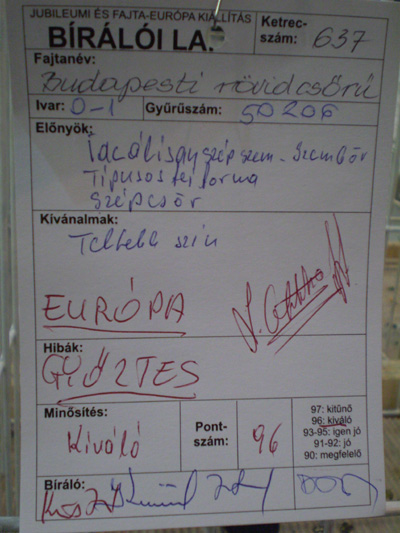 JUBILEUMI ÉS FAJTA-EURÓPA KIÁLLÍTÁS
BÍRÁLÓI LA.
Ketrec-
szám: 637
Fajtanév:
Budapesti rövidcsőrű
Ivar: 0-1 Gyűrűszám: 50206
Előnyök:
szép szem - Szembőr
Típusos fej forma
Szép csőr
Kívánalmak:
Teltebb szín
EURÓPA
Hibák:
GYŐZTES
Minősítés:
Kiváló
Pont-
szám: 96
97: kitűnő
96: kiváló
93-95: igen jó
91-92: jó
90: megfelelő
Bíráló: